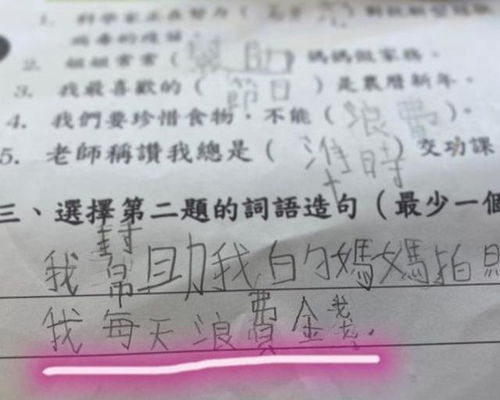 1. 科學家正在努力（　　）對抗新型冠狀
病毒的疫苗。
2. 姐姐常常（幫助）媽媽做家務。
3. 我最喜歡的（節日）是農曆新年。
4. 我們要珍惜食物，不能（浪費）。
5. 老師稱讚我總是（準時）交功課
三、選擇第二題的詞語造句（最少一個
我幫助我的媽媽拍照
我每天浪費金錢。